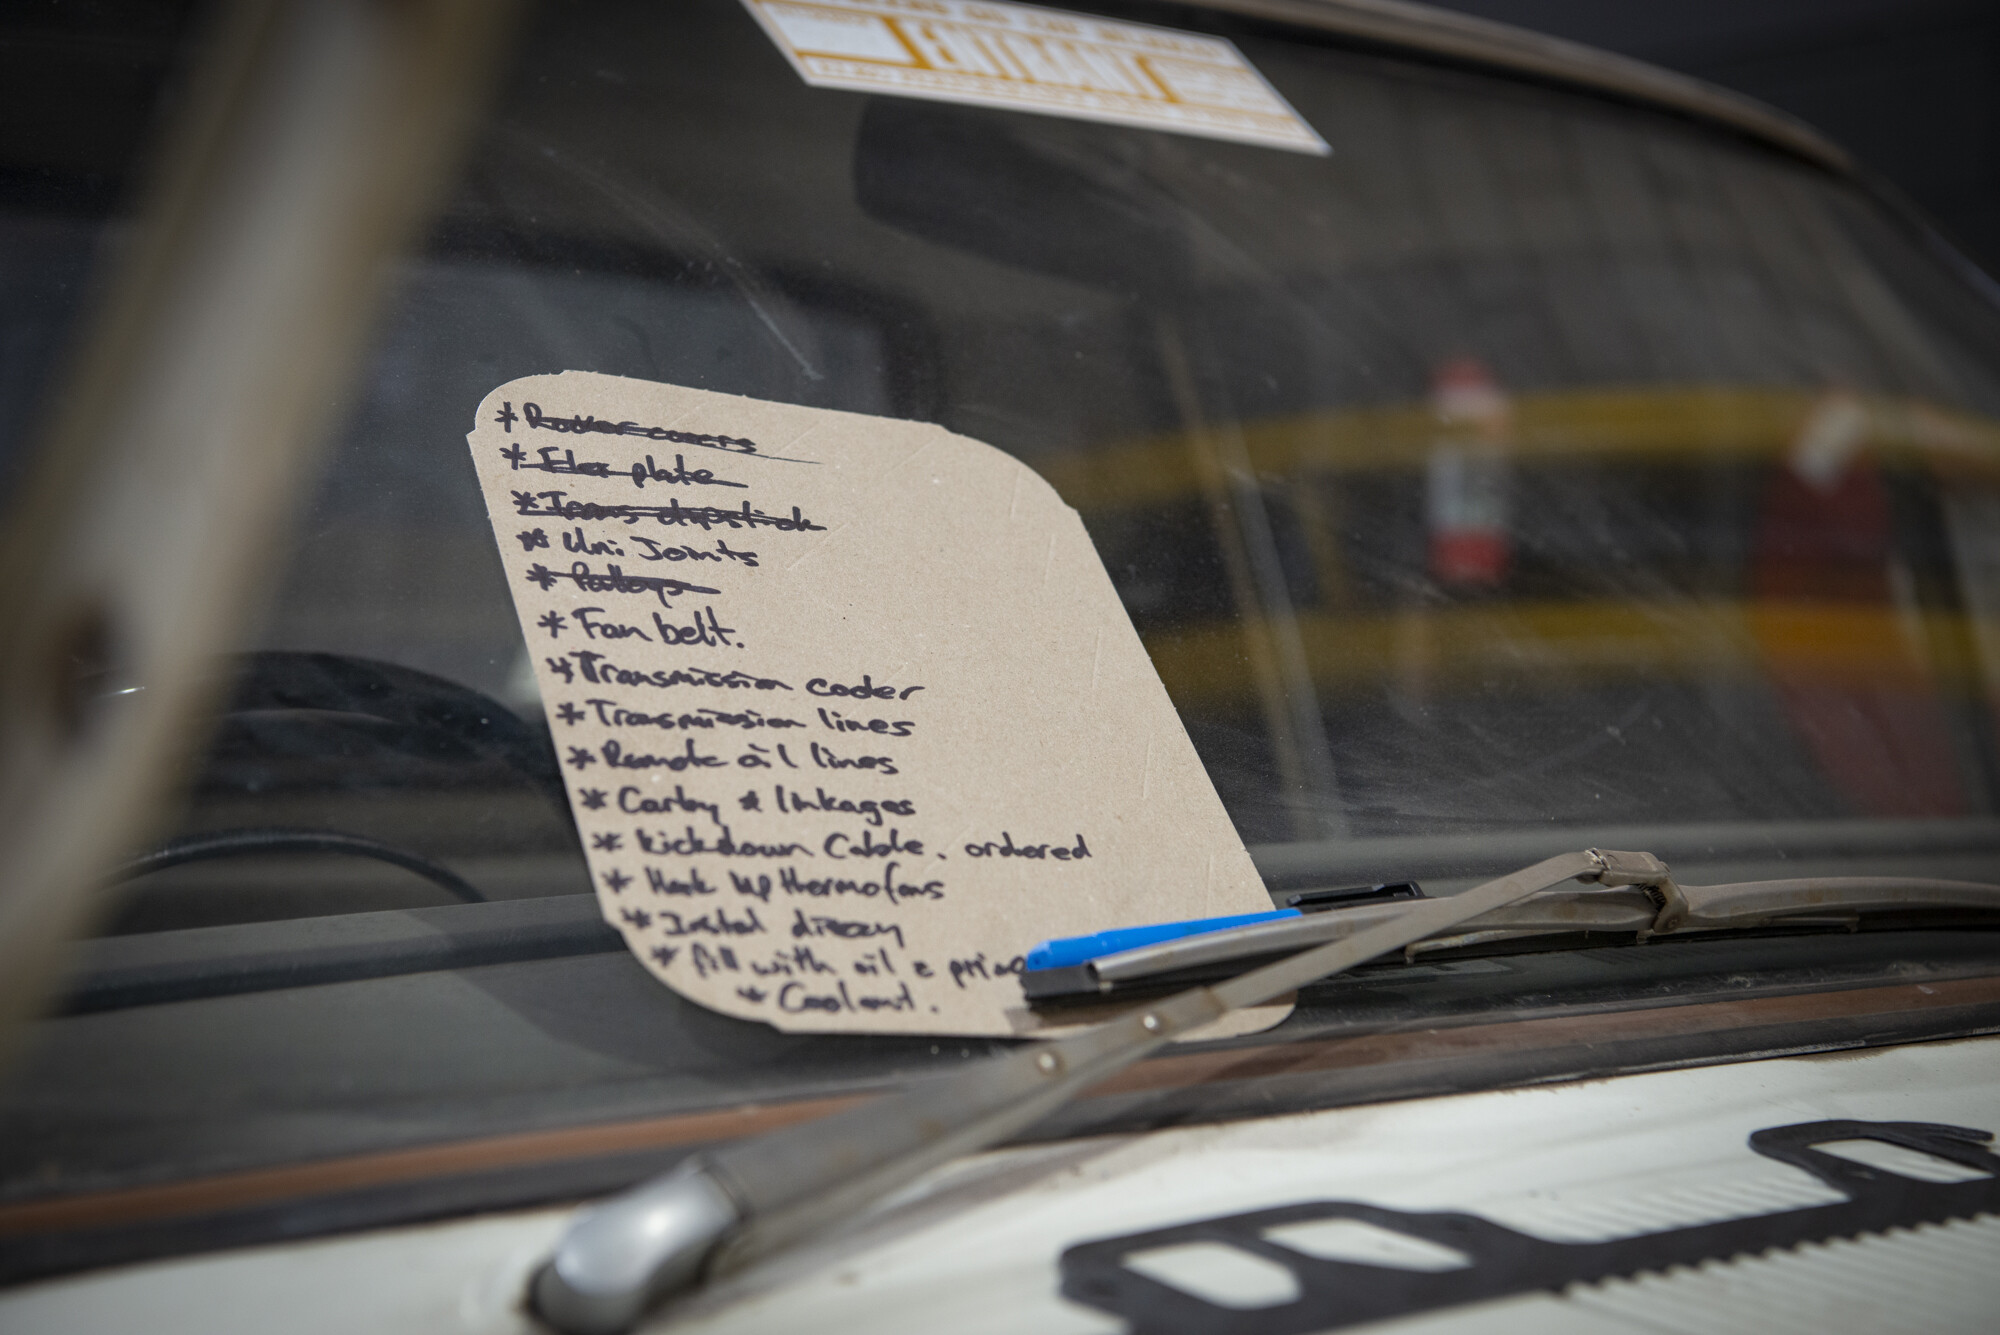 ENTRANT
* Rocker covers
* Flex plate
* Trans dipstick
* Uni Joints
* Pulleys
* Fan belt.
* Transmission cooler
* Transmission lines
* Remote oil lines
* Carby & linkages
* Kickdown Cable. ordered
* Hook up thermofans
* Instal dizzy
* fill with oil & prime
* Coolant.